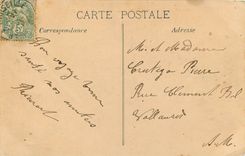 CARTE POSTALE
Correspondance
Adresse
Bon voyage bonne
santé nos amitiés
M. et Madame
Pierre
Rue Clément Bel
Vallauris
A.M.